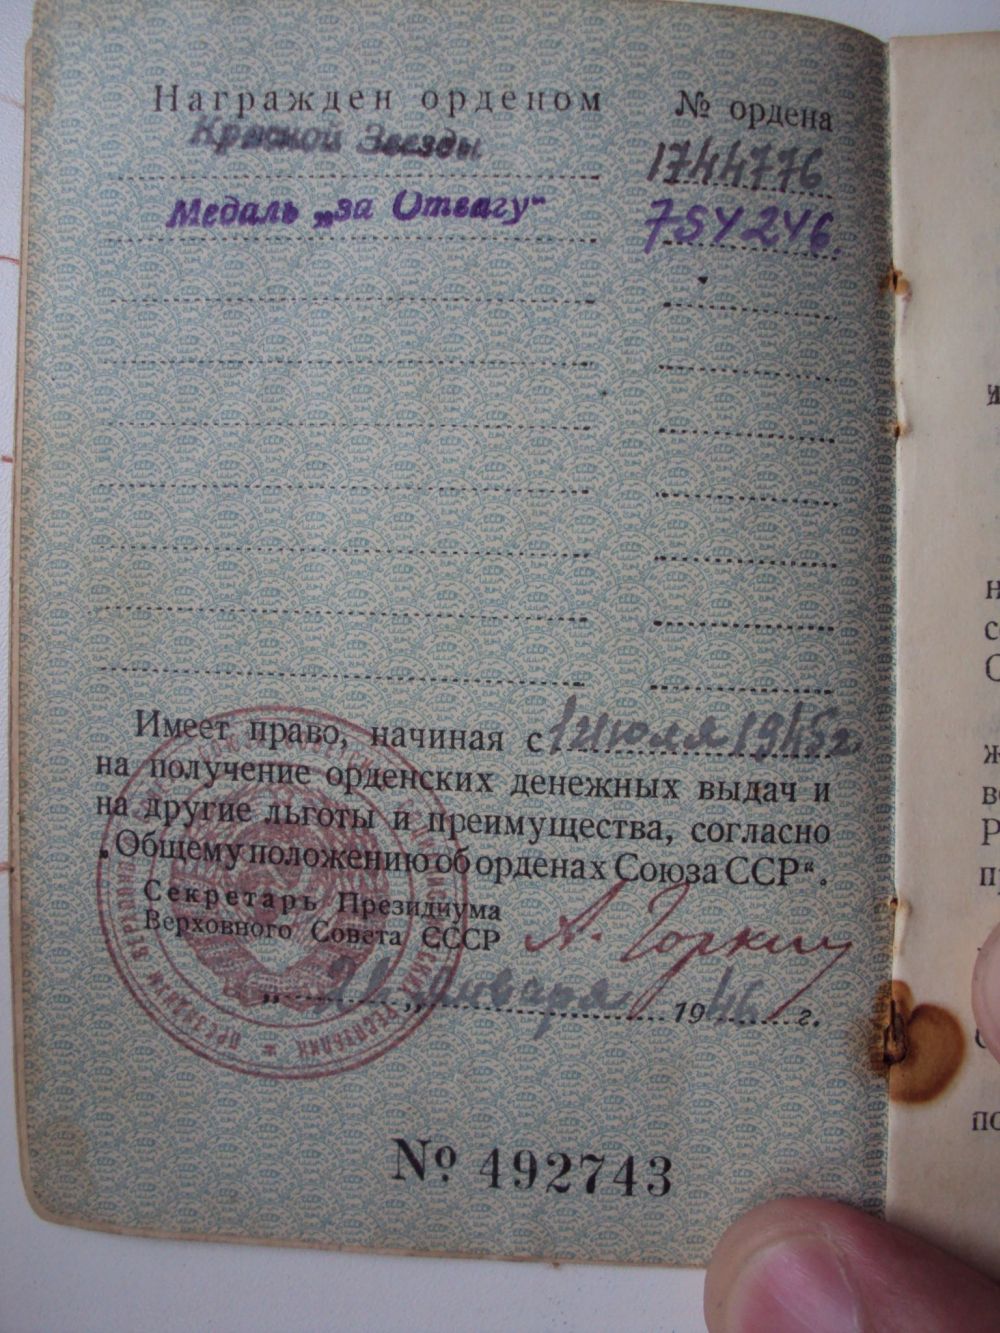 Награжден орденом № ордена
Красной Звезды 1744776
Медаль „за Отвагу“ 754246.
Имеет право, начиная с 1 июля 1945 г.
на получение орденских денежных выдач и
на другие льготы и преимущества, согласно
„Общему положению об орденах Союза ССР“.
Секретарь Президиума
Верховного Совета СССР А. Горкин
„21“ января 1946 г.
№ 492743